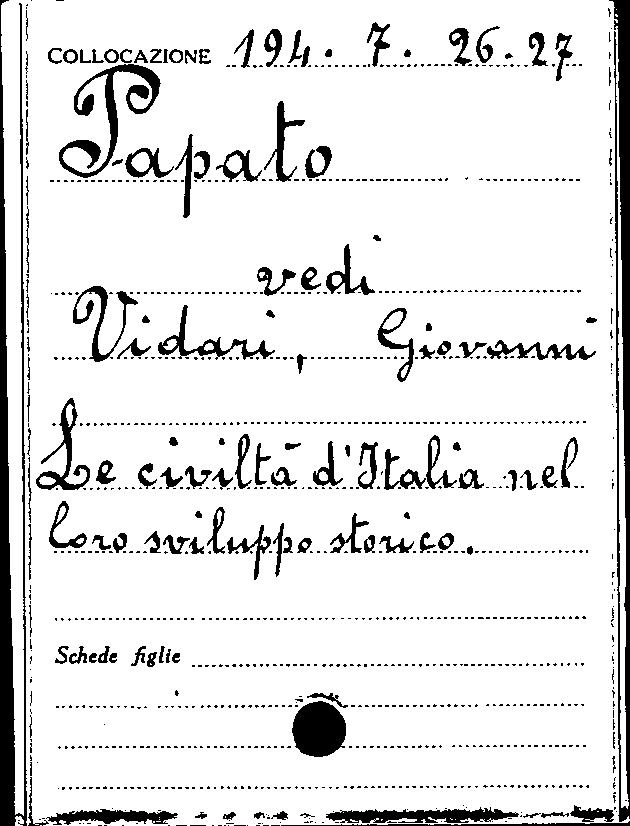 COLLOCAZIONE 194. 7. 26.27
Papato
vedi
Vidari, Giovanni
Le civiltà d'Italia nel
loro sviluppo storico.
Schede figlie